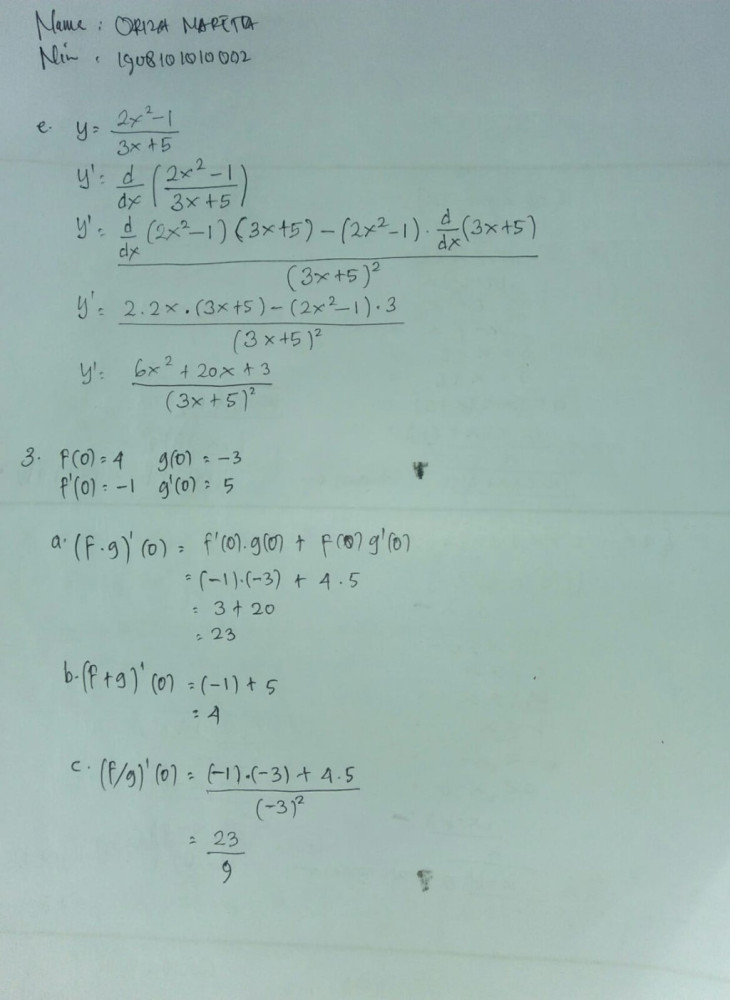 Name : ORIZA MARETTA
Nim : 1908101010002
e. y = (2x²-1)/(3x+5)
y' = d/dx ((2x²-1)/(3x+5))
y' = (d/dx (2x²-1) (3x+5) - (2x²-1) · d/dx (3x+5))/(3x+5)²
y' = (2.2x.(3x+5) - (2x²-1)·3)/(3x+5)²
y' = (6x² + 20x + 3)/(3x+5)²
3. f(0) = 4 g(0) = -3
f'(0) = -1 g'(0) = 5
a. (f·g)'(0) = f'(0).g(0) + f(0) g'(0)
= (-1).(-3) + 4.5
= 3 + 20
= 23
b. (f+g)'(0) = (-1) + 5
= 4
c. (f/g)'(0) = ((-1).(-3) + 4.5)/(-3)²
= 23/9